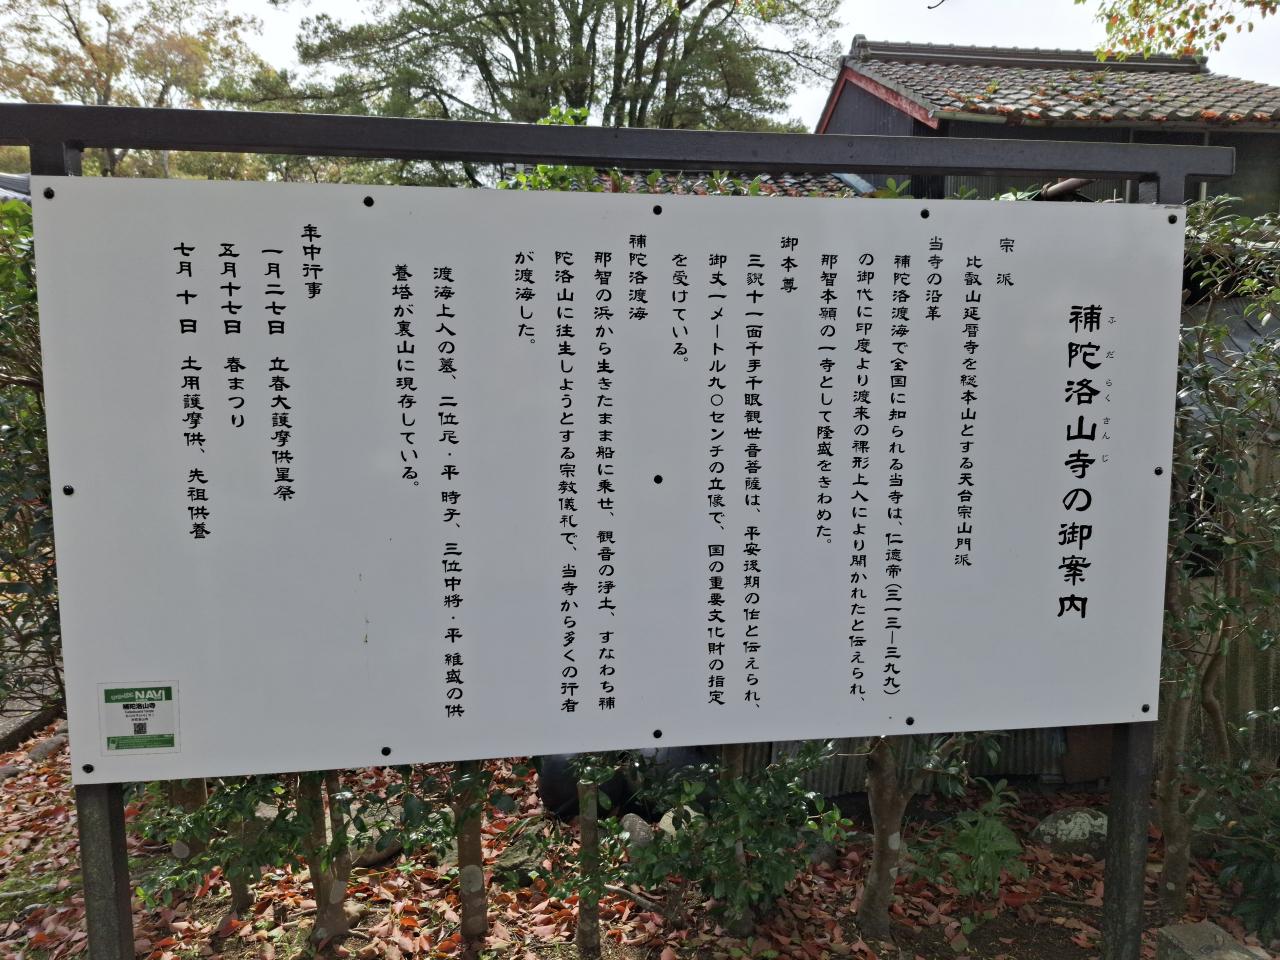 補陀洛山寺の御案内
ふだらくさんじ
宗派
比叡山延暦寺を総本山とする天台宗山門派
当寺の沿革
補陀洛渡海で全国に知られる当寺は、仁徳帝(三一三―三九九)
の御代に印度より渡来の裸形上人により開かれたと伝えられ、
那智本願の一寺として隆盛をきわめた。
御本尊
三貌十一面千手千眼観世音菩薩は、平安後期の作と伝えられ、
御丈一メートル九〇センチの立像で、国の重要文化財の指定
を受けている。
補陀洛渡海
那智の浜から生きたまま船に乗せ、観音の浄土、すなわち補
陀洛山に往生しようとする宗教儀礼で、当寺から多くの行者
が渡海した。
渡海上人の墓、二位尼・平時子、三位中将・平維盛の供
養塔が裏山に現存している。
年中行事
一月二七日 立春大護摩供星祭
五月十七日 春まつり
七月十日 土用護摩供、先祖供養
NAVI
補陀洛山寺